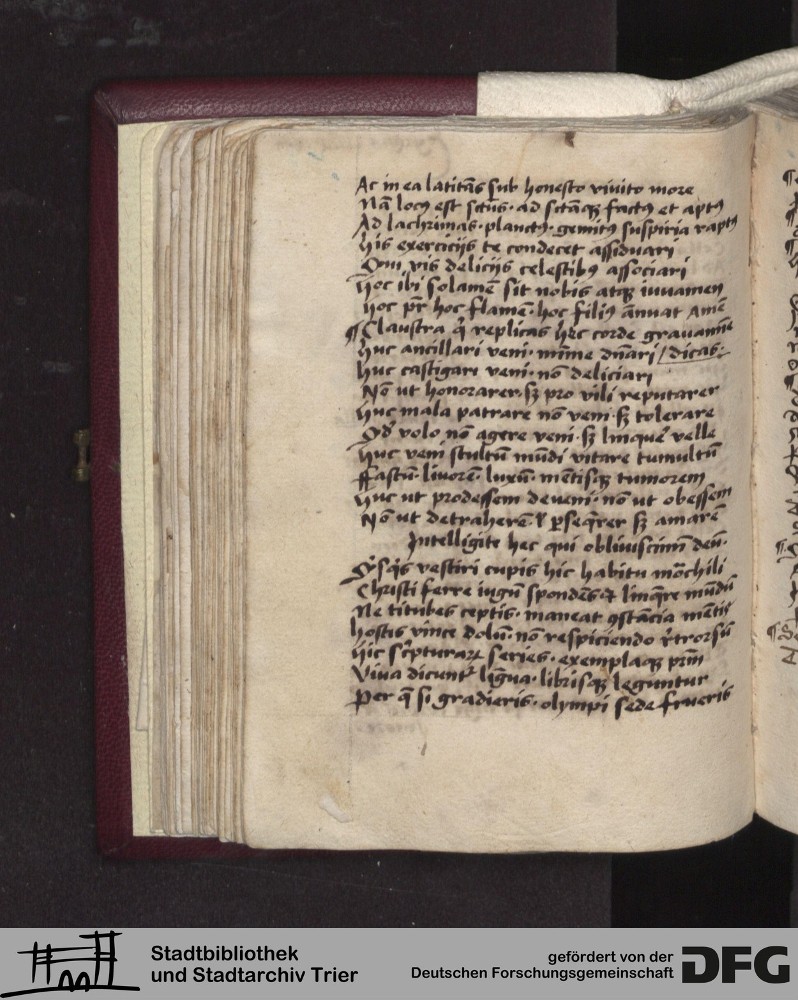 Ac in ea latitās sub honesto vivito more
Nā locꝰ est sctūs · ad sctāqꝫ factꝰ et aptꝰ
Ad lachrimas · planctꝰ · gemitꝰ suspiria raptꝰ
his exercicijs te condecet assiduari
Qui vis delicijs celestibꝰ associari
Hoc ibi solamē sit nobis atqꝫ iuuamen
hoc pr̄ hoc flamē · hoc filiꝰ ānuat Amē
¶ Claustra replicas hec corde
huc ancillari veni · mīme dn̄ari / dicas ·
huc castigari veni · nō deliciari
Nō ut honorarer · sꝫ pro vili reputarer
huc mala patrare nō veni · sꝫ tolerare
Qd' volo nō agere veni · sꝫ linque' velle
huc veni stultū mūdi vitare tumultū
Fastū · liuorē · luxū · mētisqꝫ tumorem
huc ut prodessem deveni · nō ut obessem
Nō ut detraherē ꝑseqrer sꝫ amarē
Intelligite hec qui obliuiscimī deū ·
vestiri cupis hic habitu mōchili
Christi ferre iugū spondēs & linqre mūdū
Ne titubes ceptis · maneat ꝯstācia mētis
hostis vince dolū · nō respiciendo rͭrorsū
Hic sc'pturaꝝ series · exemplaqꝫ prm̄
Viua dicunt' līgua · librisqꝫ leguntur
Per q̄ si gradieris · olympi sede frueris
Stadtbibliothek
und Stadtarchiv Trier
gefördert von der
Deutschen Forschungsgemeinschaft
DFG